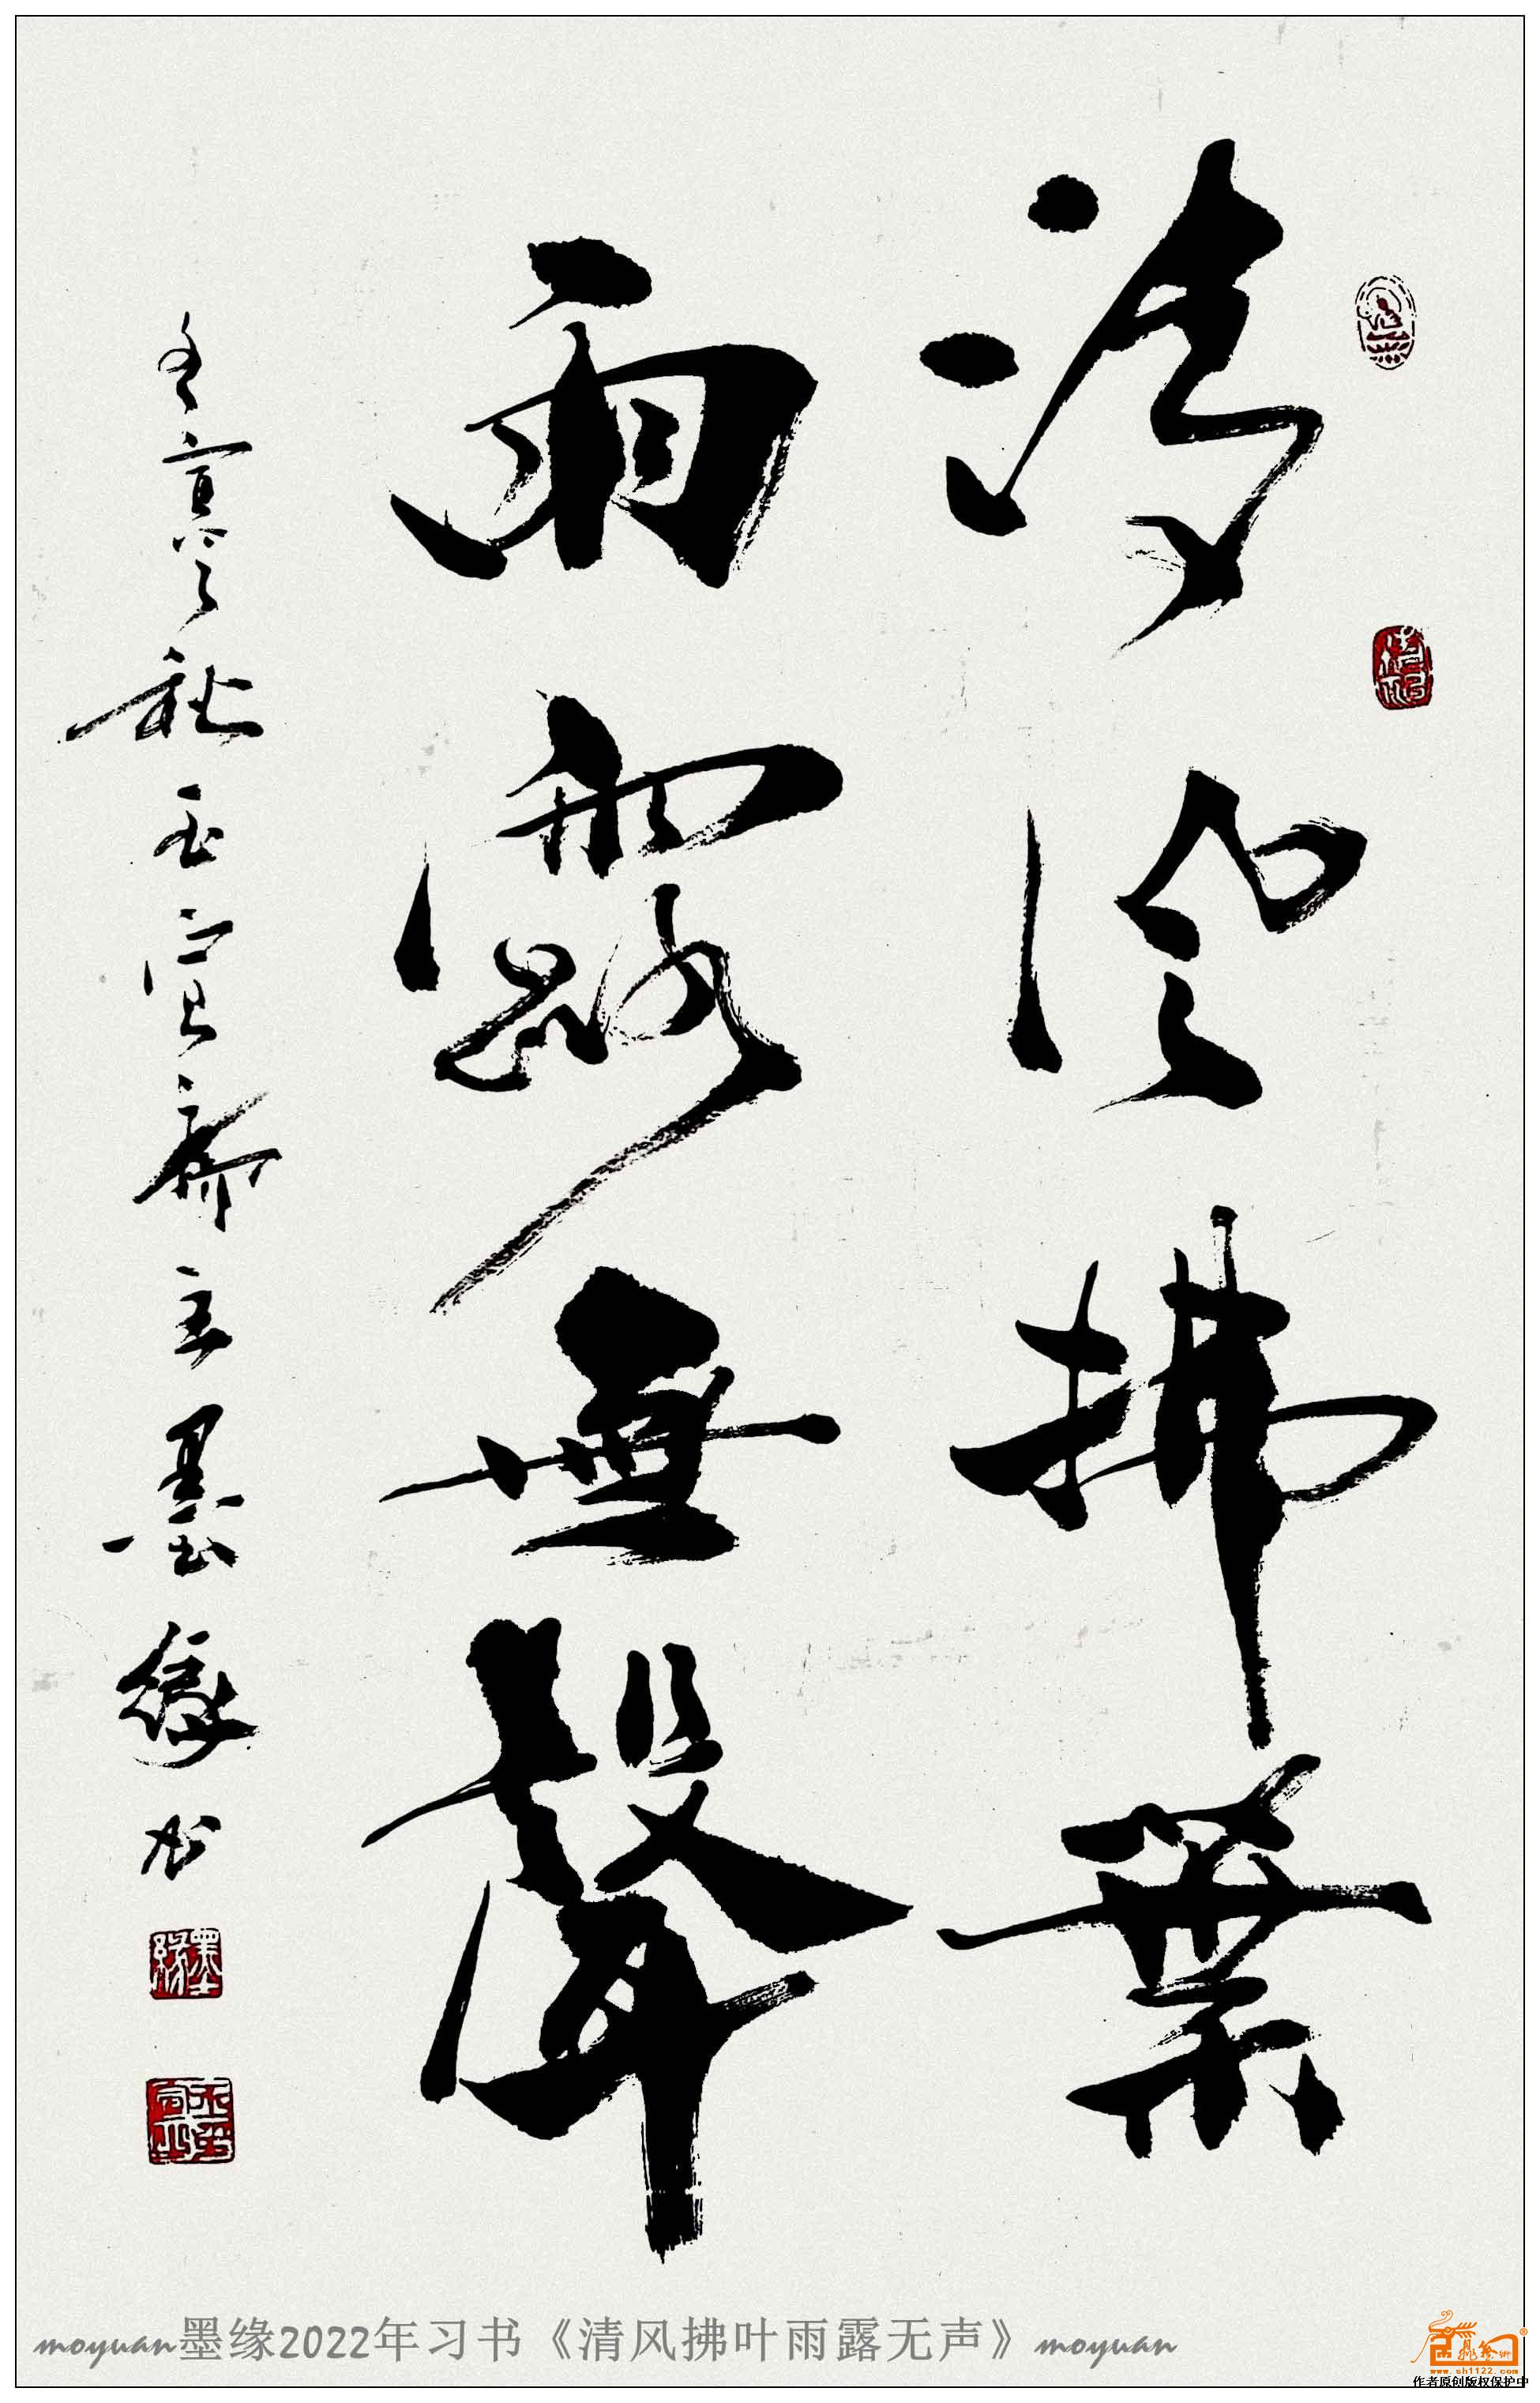 清風拂葉
雨露無聲
壬寅之秋玉宣齋主墨緣书
墨緣
moyuan墨缘2022年习书《清风拂叶雨露无声》moyuan
www.sh1122.com
作者原创版权保护中